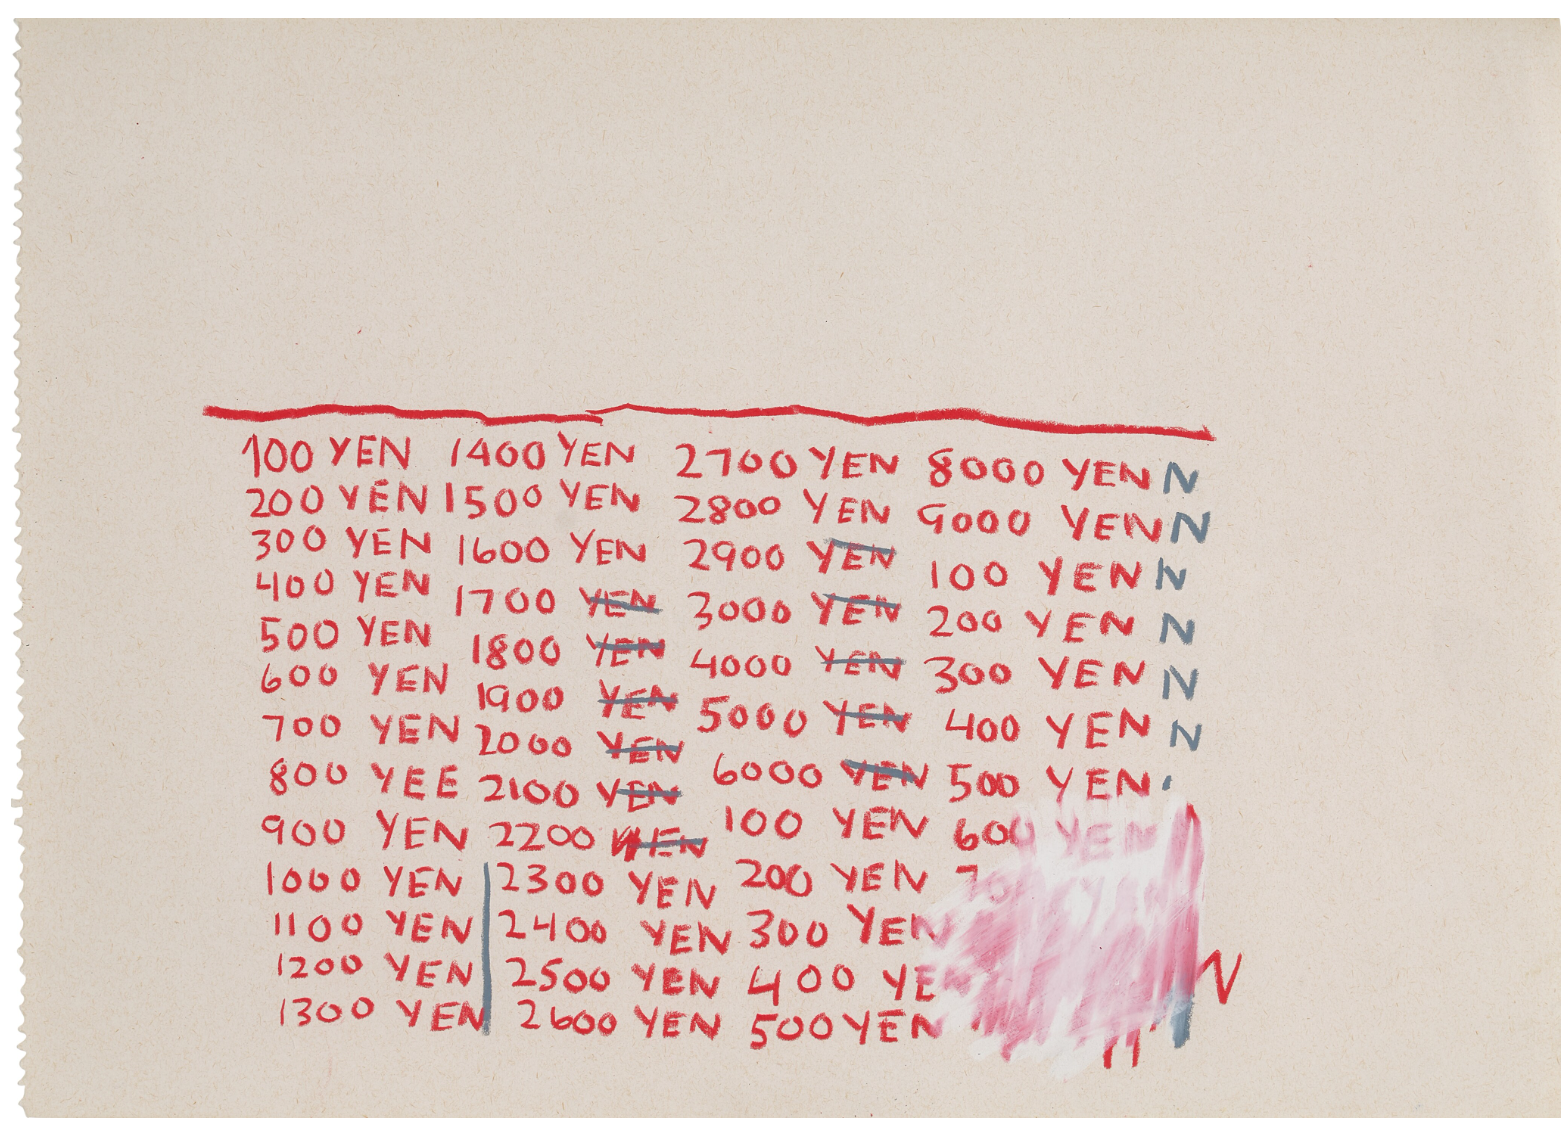 100 YEN 1400 YEN 2700 YEN 8000 YEN N
200 YEN 1500 YEN 2800 YEN 9000 YEN N
300 YEN 1600 YEN 2900 YEN 100 YEN N
400 YEN 1700 YEN 3000 YEN 200 YEN N
500 YEN 1800 YEN 4000 YEN 300 YEN N
600 YEN 1900 YEN 5000 YEN 400 YEN N
700 YEN 2000 YEN 6000 YEN 500 YEN
800 YEE 2100 YEN 100 YEN 600 YEN
900 YEN 2200 YEN 200 YEN
1000 YEN 2300 YEN 300 YEN
1100 YEN 2400 YEN 400 YE
1200 YEN 2500 YEN 500 YEN N
1300 YEN 2600 YEN